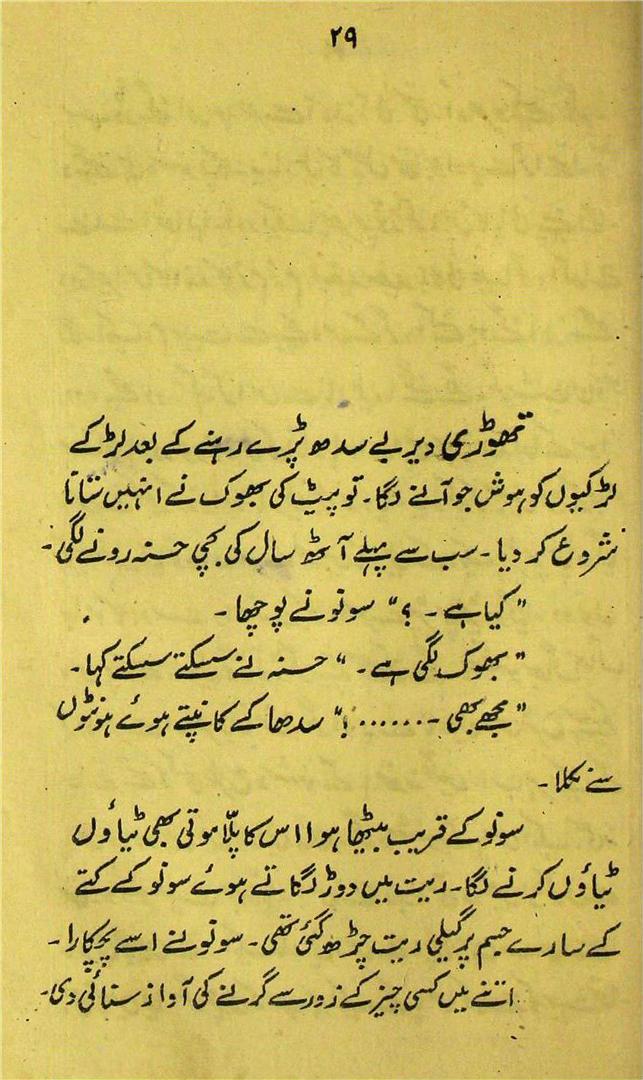 ۲۹
تھوڑی دیر بے سدھ پڑے رہنے کے بعد لڑکے
لڑکیوں کو ہوش جو آنے لگا۔ تو پیٹ کی بھوک نے انہیں ستانا
شروع کر دیا۔ سب سے پہلے آٹھ سال کی بچی حسنہ رونے لگی۔
"کیا ہے۔ ؟" سونو نے پوچھا۔
"بھوک لگی ہے۔" حسنہ نے سسکتے سسکتے کہا۔
"مجھے بھی ۔.......!" سدھا کے کانپتے ہوئے ہونٹوں
سے نکلا۔
سونو کے قریب بیٹھا ہوا اس کا پلّا موتی بھی ٹیاؤں
ٹیاؤں کرنے لگا۔ ریت میں دوڑ لگاتے ہوئے سونو کے کتے
کے سارے جسم پر گیلی ریت چڑھ گئی تھی۔ سونو نے اسے پچکارا۔
اتنے میں کسی چیز کے زور سے گرنے کی آواز سنائی دی۔